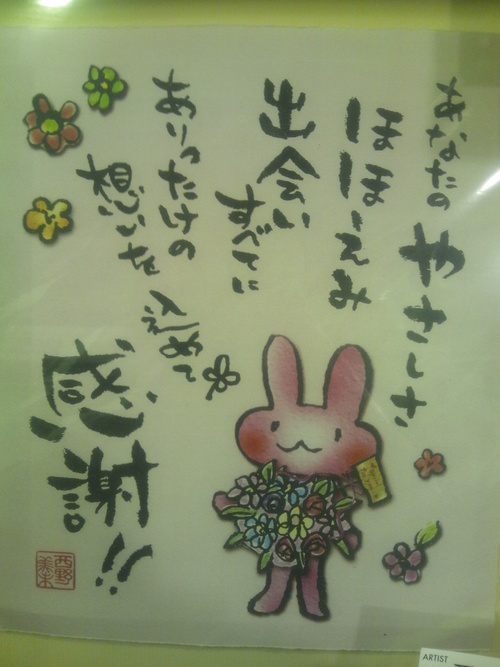 あなたの やさしさ
ほほえみ
出会い
すべてに
ありったけの
想いを
込めて
感謝!!
西野
ARTIST